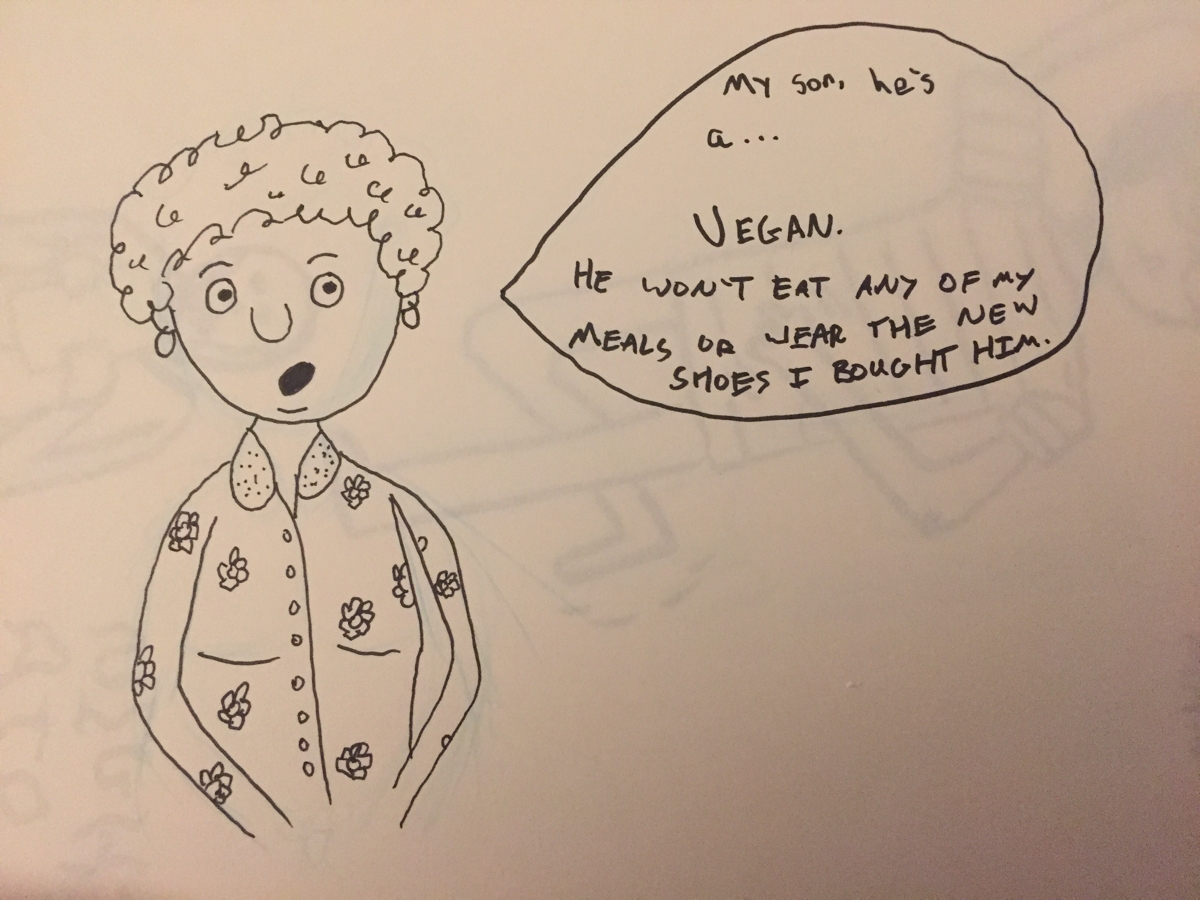 My son, he's
a...
VEGAN.
HE WON'T EAT ANY OF MY
MEALS OR WEAR THE NEW
SHOES I BOUGHT HIM.